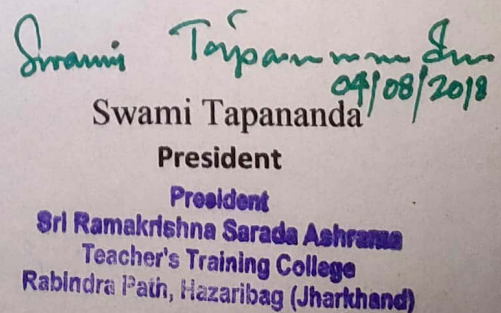 Swami
04/08/2018
Swami Tapananda
President
President
Sri Ramakrishna Sarada Ashrama
Teacher's Training College
Rabindra Path, Hazaribag (Jharkhand)